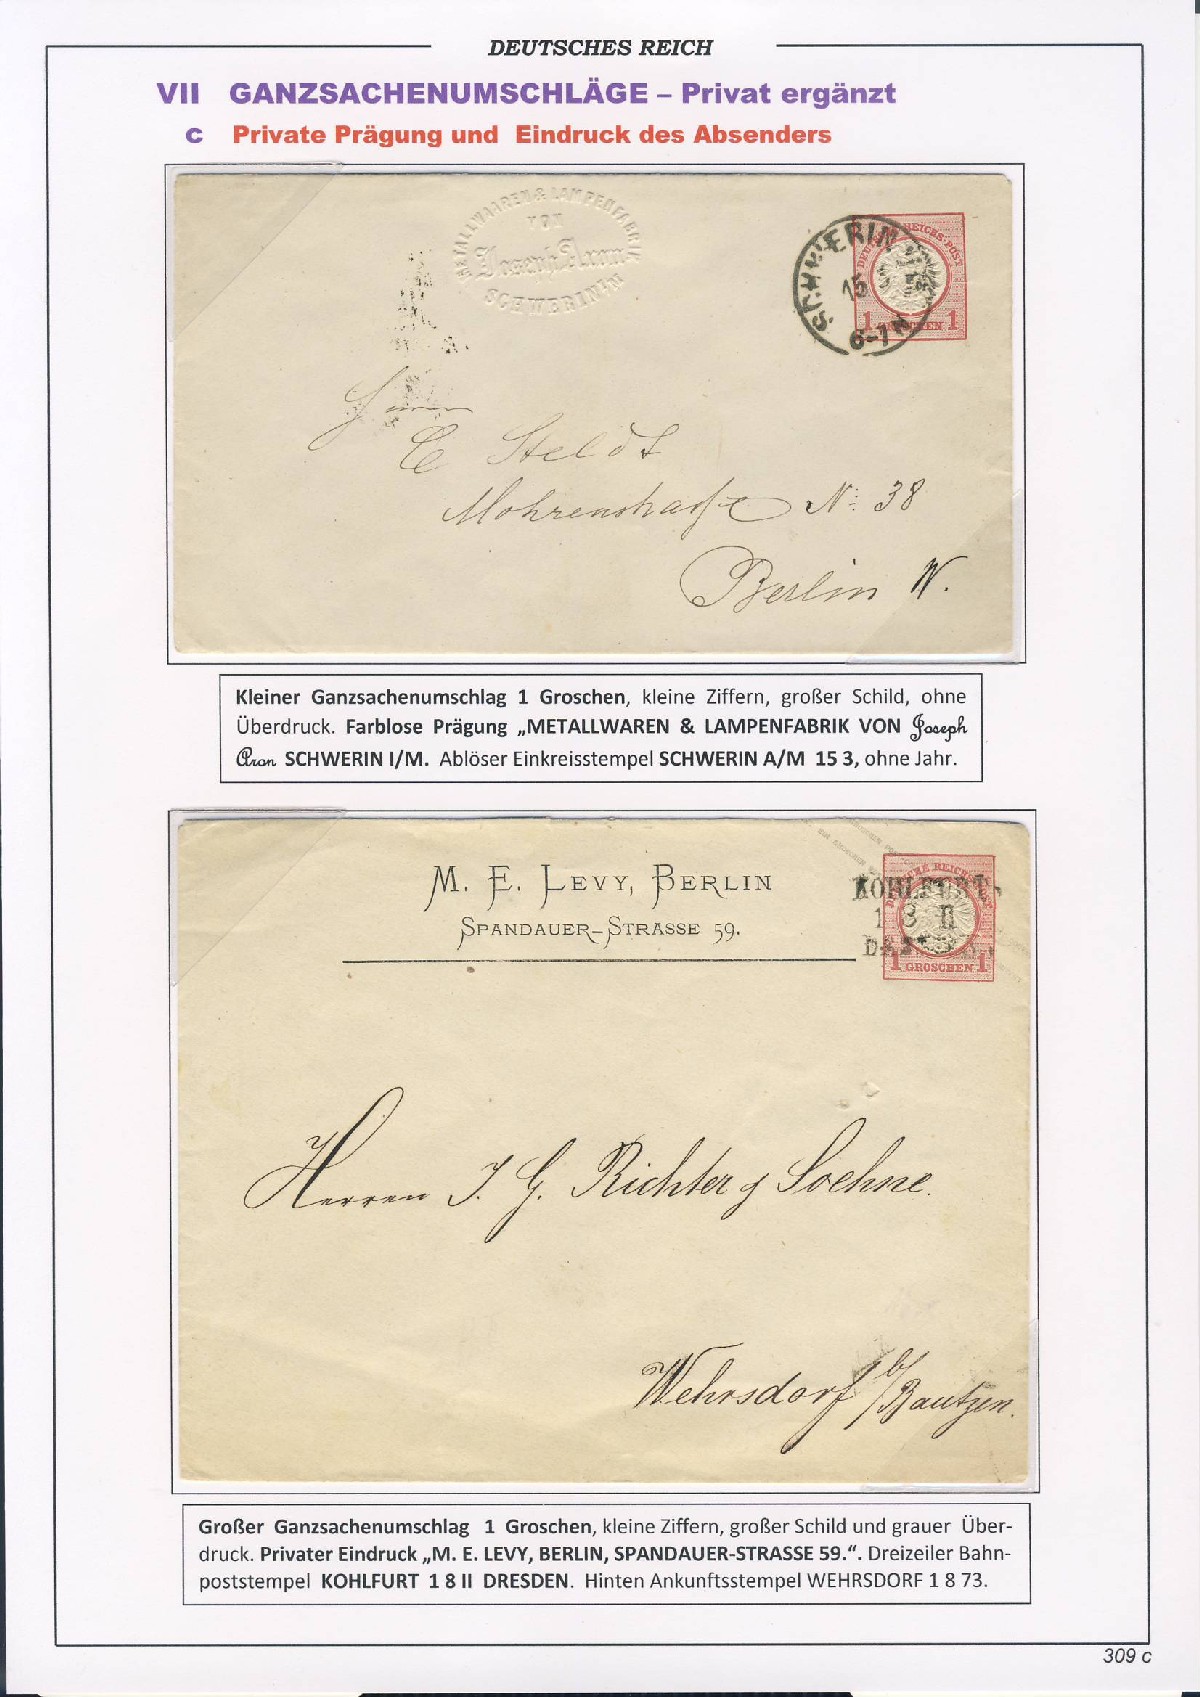 DEUTSCHES REICH
VII GANZSACHENUMSCHLÄGE – Privat ergänzt
c Private Prägung und Eindruck des Absenders
METALLWAAREN & LAMPENFABRIK
VON
Joseph Aron
SCHWERIN I/M
SCHWERIN
15
6-7N
DEUTSCHE REICHS-POST
1 GROSCHEN 1
Herrn
C Steldt
Mohrenstraße No: 38
Berlin W.
Kleiner Ganzsachenumschlag 1 Groschen, kleine Ziffern, großer Schild, ohne
Überdruck. Farblose Prägung „METALLWAREN & LAMPENFABRIK VON Joseph
Aron SCHWERIN I/M. Ablöser Einkreisstempel SCHWERIN A/M 15 3, ohne Jahr.
M. E. LEVY, BERLIN
SPANDAUER-STRASSE 59.
KOHLFURT
1 8 II
DEUTSCHE REICHS-POST
1 GROSCHEN 1
Herren J. G. Richter & Soehne.
Wehrsdorf b/Bautzen.
Großer Ganzsachenumschlag 1 Groschen, kleine Ziffern, großer Schild und grauer Über-
druck. Privater Eindruck „M. E. LEVY, BERLIN, SPANDAUER-STRASSE 59.“. Dreizeiler Bahn-
poststempel KOHLFURT 1 8 II DRESDEN. Hinten Ankunftsstempel WEHRSDORF 1 8 73.
309 c